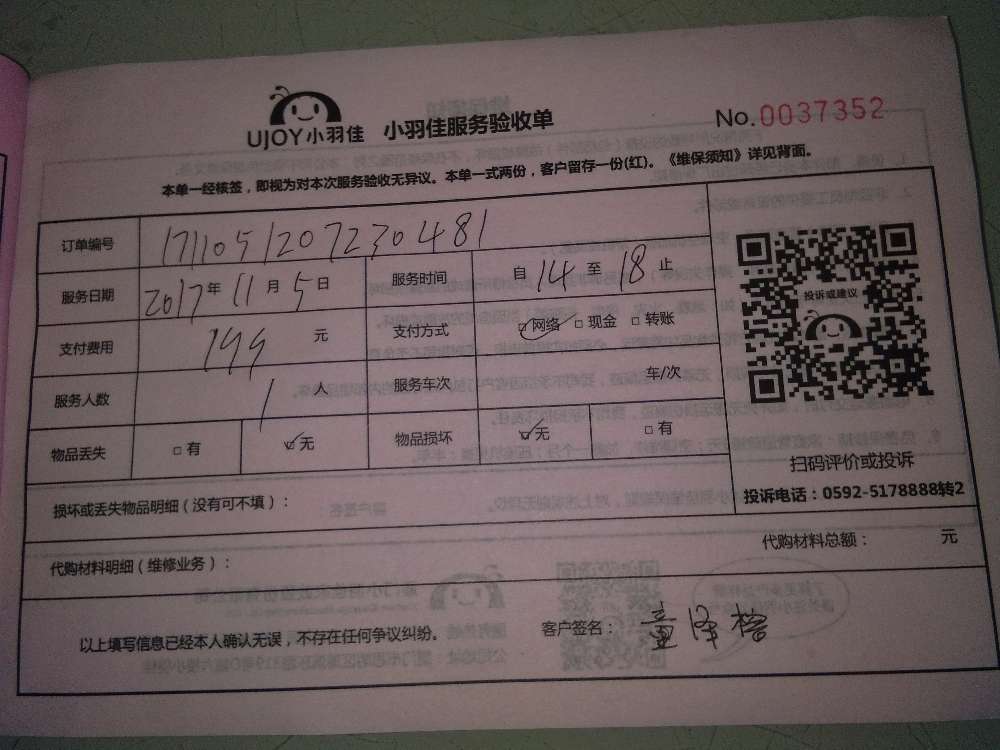 UJOY小羽佳 小羽佳服务验收单 No.0037352
本单一经核签，即视为对本次服务验收无异议。本单一式两份，客户留存一份(红)。《维保须知》详见背面。
订单编号 171105120723 0481
服务日期 2017年 11月 5日 服务时间 自 14 至 18 止
支付费用 199 元 支付方式 ☑网络 □现金 □转账
服务人数 1 人 服务车次 车/次
物品丢失 □有 ☑无 物品损坏 ☑无 □有
投诉或建议
扫码评价或投诉
投诉电话：0592-5178888转2
损坏或丢失物品明细（没有可不填）：
代购材料明细（维修业务）： 代购材料总额： 元
以上填写信息已经本人确认无误，不存在任何争议纠纷。 客户签名：